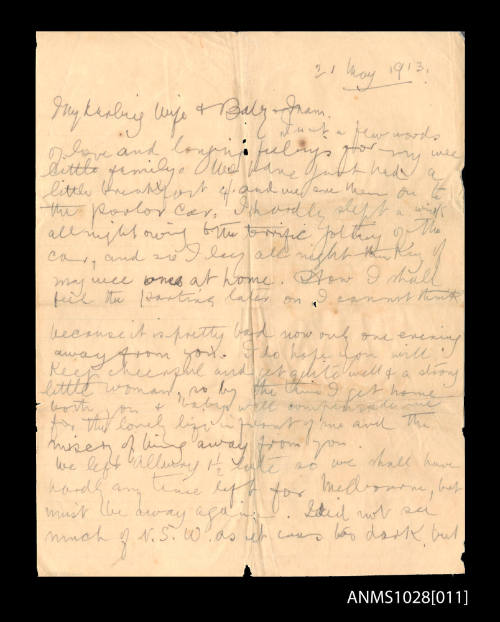 21 May 1913.
My Darling Wife & Baby Inam.
Just a few words
of love and longing feelings for my wee
little family. We have just had a
little breakfast & and we are then on to
the parlor car. I hardly slept a wink
all night owing to the terrific jolting of the
car, and so I lay all night thinking of
my wee ones at home. How I shall
feel the parting later on I cannot think
because it is pretty bad now only one evening
away from you. I do hope you will
keep cheerful and get quite well & a strong
little woman, so by the time I get home
both you & baby will compensate me
for the lonely life in front of me and the
misery of being away from you.
We left Albury 1½ late so we shall have
hardly any time left for Melbourne, but
must be away again. I did not see
much of N.S.W. as it was too dark, but
ANMS1028[011]